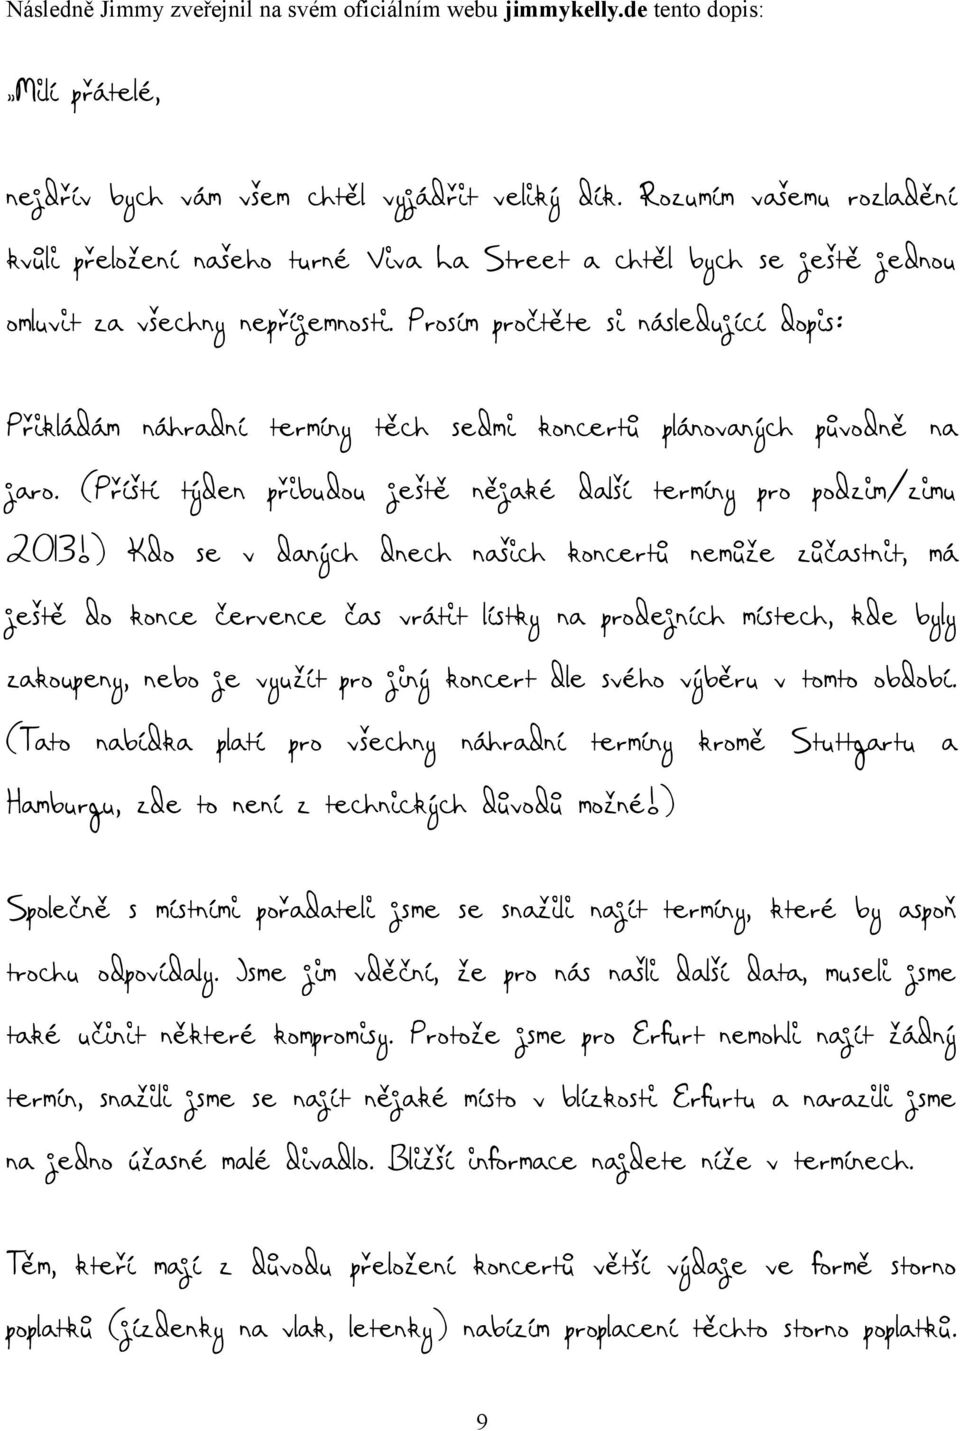 Následně Jimmy zveřejnil na svém oficiálním webu jimmykelly.de tento dopis:
„Milí přátelé,
nejdřív bych vám všem chtěl vyjádřit veliký dík. Rozumím vašemu rozladění
kvůli přeložení našeho turné Viva La Street a chtěl bych se ještě jednou
omluvit za všechny nepříjemnosti. Prosím pročtěte si následující dopis:
Přikládám náhradní termíny těch sedmi koncertů plánovaných původně na
jaro. (Příští týden přibudou ještě nějaké další termíny pro podzim/zimu
2013!) Kdo se v daných dnech našich koncertů nemůže zůčastnit, má
ještě do konce července čas vrátit lístky na prodejních místech, kde byly
zakoupeny, nebo je využít pro jiný koncert dle svého výběru v tomto období.
(Tato nabídka platí pro všechny náhradní termíny kromě Stuttgartu a
Hamburgu, zde to není z technických důvodů možné!)
Společně s místními pořadateli jsme se snažili najít termíny, které by aspoň
trochu odpovídaly. Jsme jim vděční, že pro nás našli další data, museli jsme
také učinit některé kompromisy. Protože jsme pro Erfurt nemohli najít žádný
termín, snažili jsme se najít nějaké místo v blízkosti Erfurtu a narazili jsme
na jedno úžasné malé divadlo. Bližší informace najdete níže v termínech.
Těm, kteří mají z důvodu přeložení koncertů větší výdaje ve formě storno
poplatků (jízdenky na vlak, letenky) nabízím proplacení těchto storno poplatků.
9